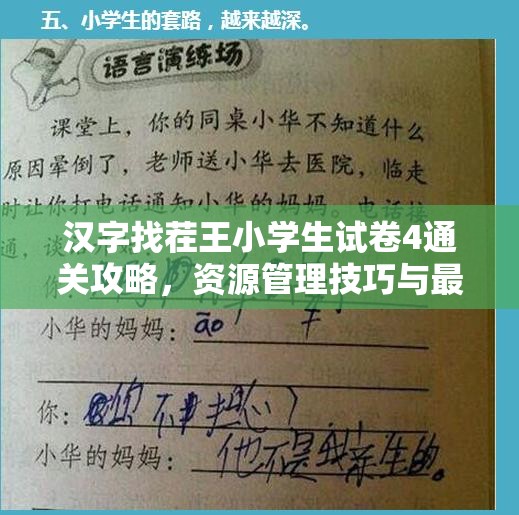 五、小学生的套路，越来越深。
语言演练场
课堂上，你的同桌小华不知道什么
原因晕倒了，老师送小华去医院，临走
时让你打电话通知小华的妈妈。电话接
通，
汉字找茬王小学生试卷4通
关攻略，资源管理技巧与最
小华的妈妈：āo
你：你不担心
小华的妈妈：他不是我亲生的。